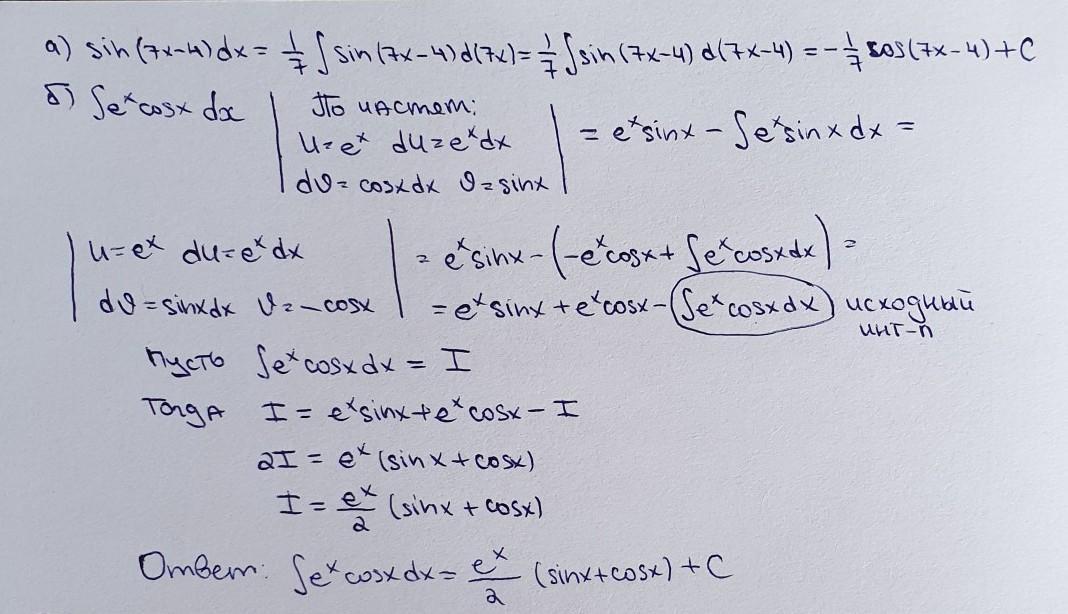 а) sin(7x-4)dx = 1/7 ∫sin(7x-4)d(7x) = 1/7 ∫sin(7x-4)d(7x-4) = -1/7 cos(7x-4)+C
б) ∫eˣcosx dx | По частям: u=eˣ du=eˣdx dv=cosxdx v=sinx | = eˣsinx - ∫eˣsinxdx =
| u=eˣ du=eˣdx | = eˣsinx-(-eˣcosx+∫eˣcosxdx) =
| dv=sinxdx v=-cosx | = eˣsinx+eˣcosx-∫eˣcosxdx исходный инт-л
Пусть ∫eˣcosxdx = I
Тогда I = eˣsinx+eˣcosx-I
2I = eˣ(sinx+cosx)
I = eˣ/2 (sinx+cosx)
Ответ: ∫eˣcosxdx = eˣ/2 (sinx+cosx)+C